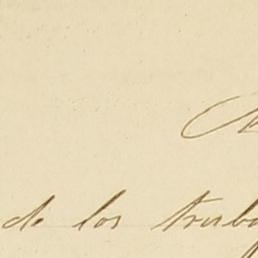 de los trab